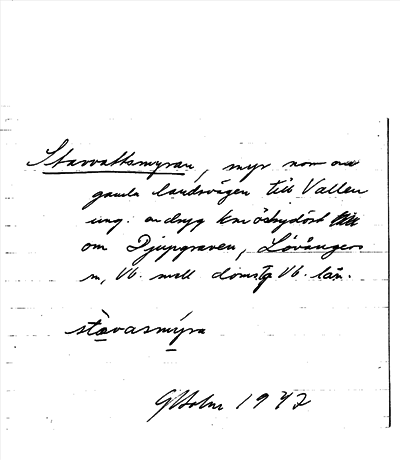 Starvattsmyran, myr norr om
gamla landsvägen till Vallen
ung. en dryg km östsydöst
om Djupgraven, Lövångers
sn, Vb. mell. domsg Vb. län.
stavasmýra
GHolm 1942